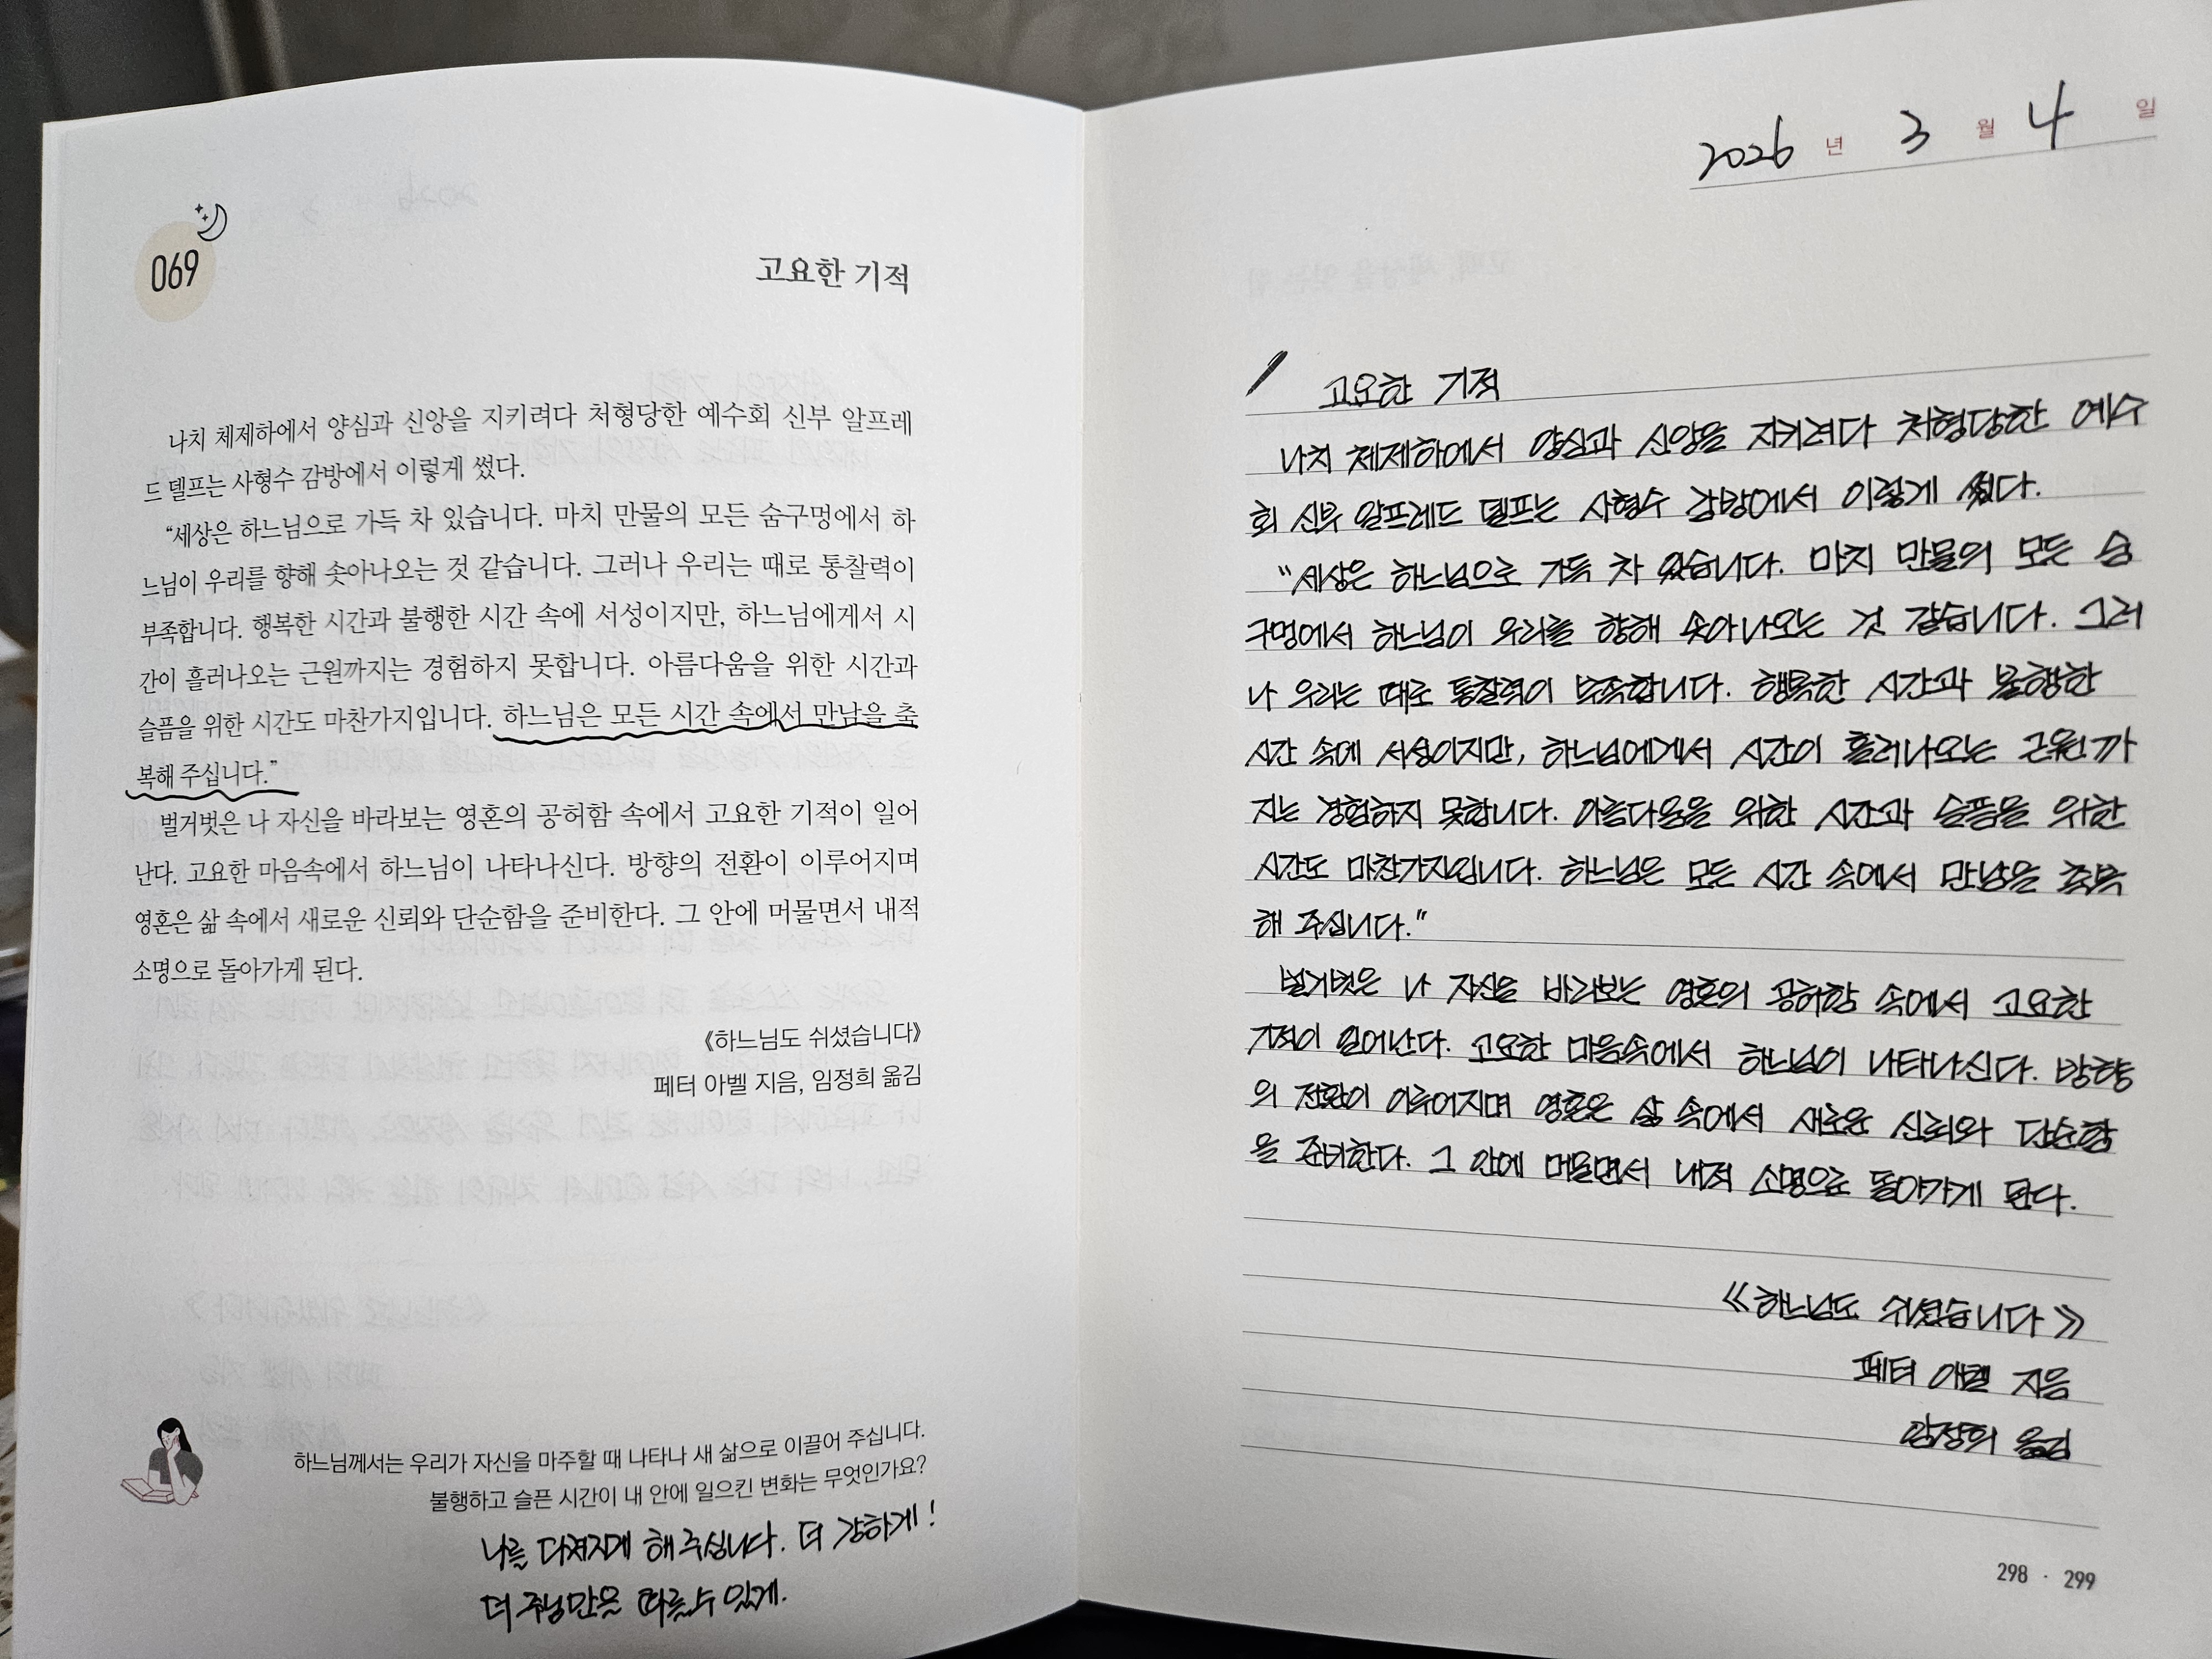 069
고요한 기적
나치 체제하에서 양심과 신앙을 지키려다 처형당한 예수회 신부 알프레
드 델프는 사형수 감방에서 이렇게 썼다.
“세상은 하느님으로 가득 차 있습니다. 마치 만물의 모든 숨구멍에서 하
느님이 우리를 향해 솟아나오는 것 같습니다. 그러나 우리는 때로 통찰력이
부족합니다. 행복한 시간과 불행한 시간 속에 서성이지만, 하느님에게서 시
간이 흘러나오는 근원까지는 경험하지 못합니다. 아름다움을 위한 시간과
슬픔을 위한 시간도 마찬가지입니다. 하느님은 모든 시간 속에서 만남을 축
복해 주십니다.”
벌거벗은 나 자신을 바라보는 영혼의 공허함 속에서 고요한 기적이 일어
난다. 고요한 마음속에서 하느님이 나타나신다. 방향의 전환이 이루어지며
영혼은 삶 속에서 새로운 신뢰와 단순함을 준비한다. 그 안에 머물면서 내적
소명으로 돌아가게 된다.
《하느님도 쉬셨습니다》
페터 아벨 지음, 임정희 옮김
하느님께서는 우리가 자신을 마주할 때 나타나 새 삶으로 이끌어 주십니다.
불행하고 슬픈 시간이 내 안에 일으킨 변화는 무엇인가요?
나를 다져지게 해 주십니다. 더 강하게!
더 주님만을 따를 수 있게.
2026 년 3 월 4 일
고요한 기적
나치 체제하에서 양심과 신앙을 지키려다 처형당한 예수
회 신부 알프레드 델프는 사형수 감방에서 이렇게 썼다.
“세상은 하느님으로 가득 차 있습니다. 마치 만물의 모든 숨
구멍에서 하느님이 우리를 향해 솟아나오는 것 같습니다. 그러
나 우리는 때로 통찰력이 부족합니다. 행복한 시간과 불행한
시간 속에 서성이지만, 하느님에게서 시간이 흘러나오는 근원까
지는 경험하지 못합니다. 아름다움을 위한 시간과 슬픔을 위한
시간도 마찬가지입니다. 하느님은 모든 시간 속에서 만남을 축복
해 주십니다.”
벌거벗은 나 자신을 바라보는 영혼의 공허함 속에서 고요한
기적이 일어난다. 고요한 마음속에서 하느님이 나타나신다. 방향
의 전환이 이루어지며 영혼은 삶 속에서 새로운 신뢰와 단순함
을 준비한다. 그 안에 머물면서 내적 소명으로 돌아가게 된다.
《하느님도 쉬셨습니다》
페터 아벨 지음
임정희 옮김
298 · 299